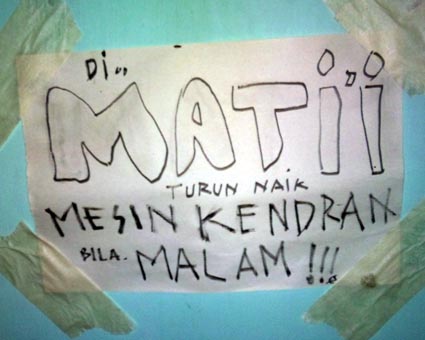 Di..
MATii
TURUN NAIK
MESIN KENDRAN
BILA. MALAM !!!